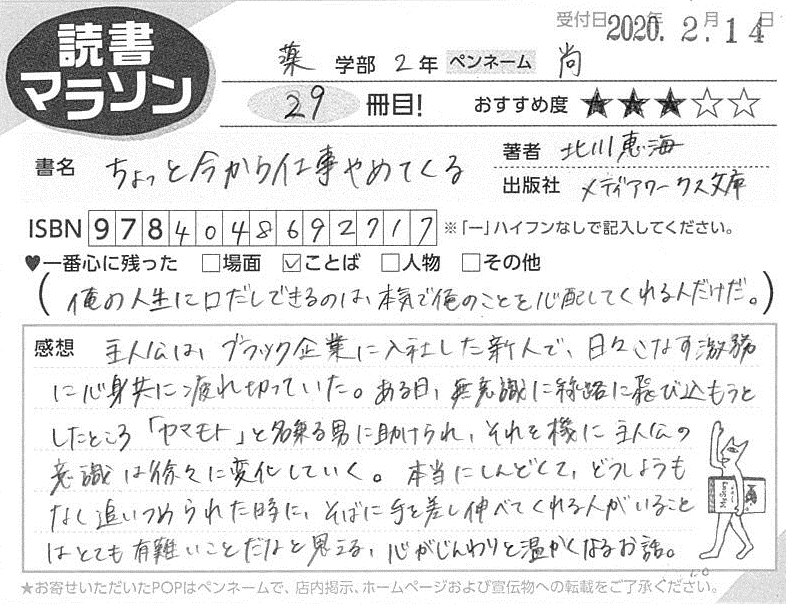 読書
マラソン
受付日 2020年 2月 14日
薬 学部 2年 ペンネーム 尚
29 冊目! おすすめ度 ★★★☆☆
書名 ちょっと今から仕事やめてくる
著者 北川恵海
出版社 メディアワークス文庫
ISBN 9784048692717 ※「ー」ハイフンなしで記入してください。
♥一番心に残った □場面 ☑ことば □人物 □その他
(俺の人生に口だしできるのは、本気で俺のことを心配してくれる人だけだ。)
感想 主人公は、ブラック企業に入社した新人で、日々こなす激務
に心身共に疲れ切っていた。ある日、無意識に線路に飛び込もうと
したところ「ヤマモト」と名乗る男に助けられ、それを機に主人公の
意識は徐々に変化していく。本当にしんどくて、どうしようも
なく追いつめられた時に、そばに手を差し伸べてくれる人がいること
はとても有難いことだなと思える、心がじんわりと温かくなるお話。
★お寄せいただいたPOPはペンネームで、店内掲示、ホームページおよび宣伝物への転載をご了承ください。